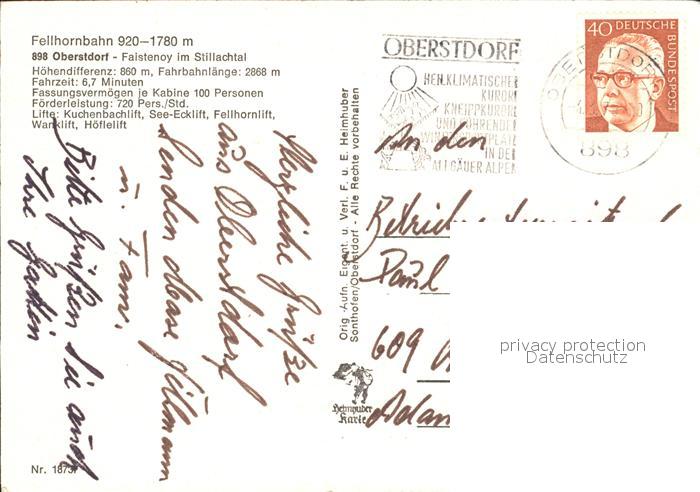 Fellhornbahn 920–1780 m
898 Oberstdorf - Faistenoy im Stillachtal
Höhendifferenz: 860 m, Fahrbahnlänge: 2868 m
Fahrzeit: 6,7 Minuten
Fassungsvermögen je Kabine 100 Personen
Förderleistung: 720 Pers./Std.
Lifte: Kuchenbachlift, See-Ecklift, Fellhornlift,
Wanklift, Höflelift
Herzliche Grüße
aus Oberstdorf
senden
u. Fam.
Bitte Grüßen Sie auch
Ihre Gattin
Nr. 1873
Orig.-Aufn. Eigent. u. Verl. F. u. E. Heimhuber
Sonthofen/Oberstdorf - Alle Rechte vorbehalten
Heimhuber
Karte
OBERSTDORF
HEILKLIMATISCHER
KURORT
KNEIPPKURORT
UND FÜHRENDER
IN DEN
ALLGÄUER ALPEN
OBERSTDORF
898
40 DEUTSCHE
BUNDESPOST
An den
Paul
609
Adam
privacy protection
Datenschutz